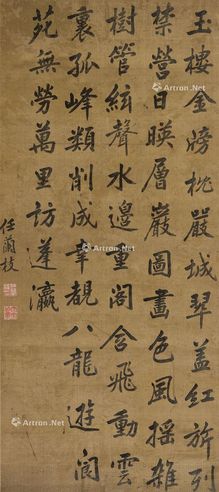 玉樓金牓枕嚴城翠蓋紅旂列
禁營日暎層巖圖畫色風搖雜
樹管絃聲水邊重閣含飛動雲
裏孤峰類削成幸覩八龍遊閬
苑無勞萬里訪蓬瀛
任蘭枝
Artron.Net
Artron.Net
Artron.Net
Artron.Net
Artron.Net